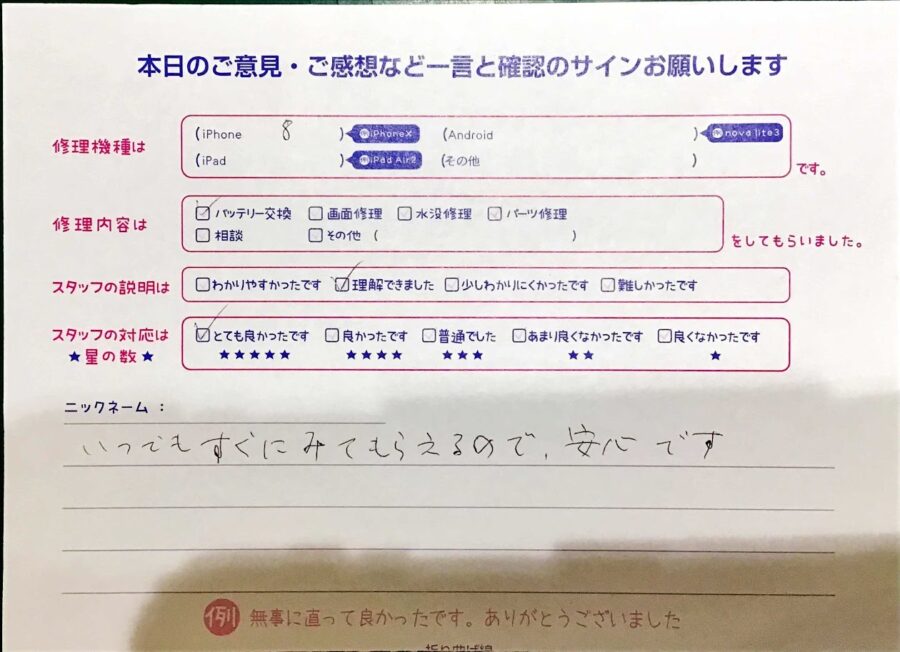 本日のご意見・ご感想など一言と確認のサインお願いします
修理機種は
(iPhone 8 ) 例iPhoneX (Android ) 例nova lite3
(iPad ) 例iPad Air2 (その他 )
です。
修理内容は
バッテリー交換 画面修理 水没修理 パーツ修理
相談 その他 ( )
をしてもらいました。
スタッフの説明は
わかりやすかったです 理解できました 少しわかりにくかったです 難しかったです
スタッフの対応は
★星の数★
とても良かったです 良かったです 普通でした あまり良くなかったです 良くなかったです
★★★★★ ★★★★ ★★★ ★★ ★
ニックネーム :
いつでもすぐにみてもらえるので、安心です
例 無事に直って良かったです。ありがとうございました
折り曲げ線